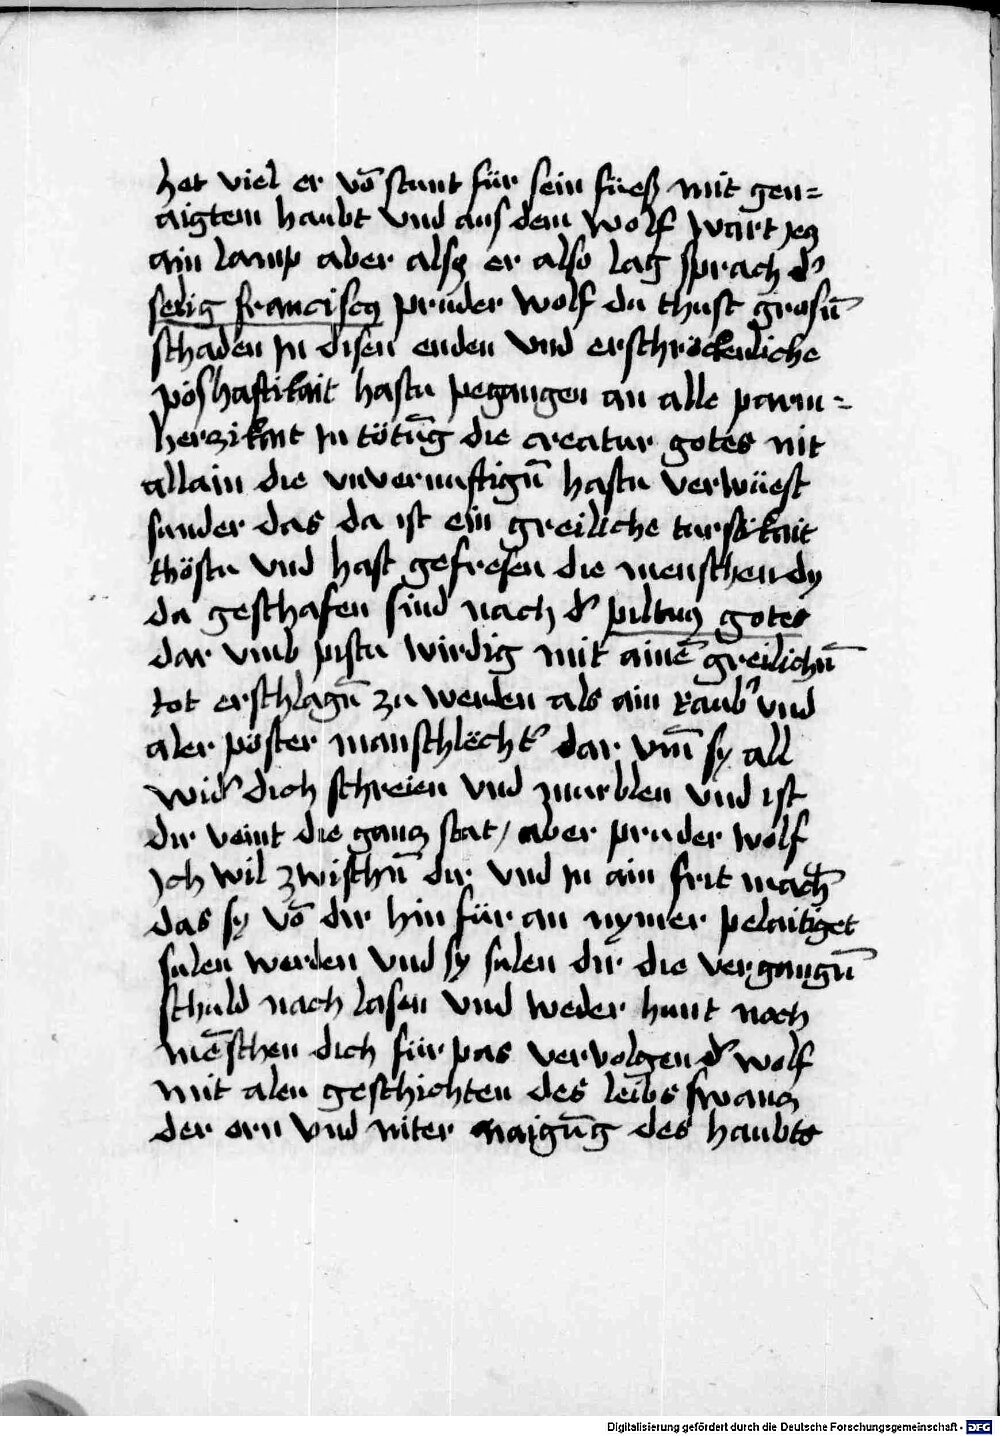 het viel er võ stunt für sein füeß mit gen=
aigtem haubt vnd aus dem wolf wart
ain lamp aber als er also lag sprach d'
selig franciscus prüder wolf du thust grosñ
schaden jn disen enden vnd erschröckenliche
pöshaftikait hastu pegangen an alle parm=
herzikait jn tötũg die creatur gotes nit
allain die vnvernuftigñ hastu verwüest
sunder das da ist ein greiliche turstikait
thöstu vnd hast gefresen die menschen dy
da geschafen sind nach d' piltung gotes
dar vmb pistu wirdig mit ainẽ greilichñ
tot erschlagñ zu werden als ain raub' vnd
aler pöster manschlecht' dar vm̃ sy all
wid' dich schreien vnd murblen vnd ist
dir veint die gancz stat / aber pruder wolf
Jch wil zwischñ dir vnd jn ain frit mach̃
das sy võ dir hin für an nymer pelaitiget
sulen werden vnd sy sulen dir die vergangñ
schuld nach lasen vnd weder hunt noch
mẽschen dich für pas vervolgen d' wolf
mit alen geschichten des leibs swancz
der orn vnd niter naigũg des haubts
Digitalisierung gefördert durch die Deutsche Forschungsgemeinschaft - DFG